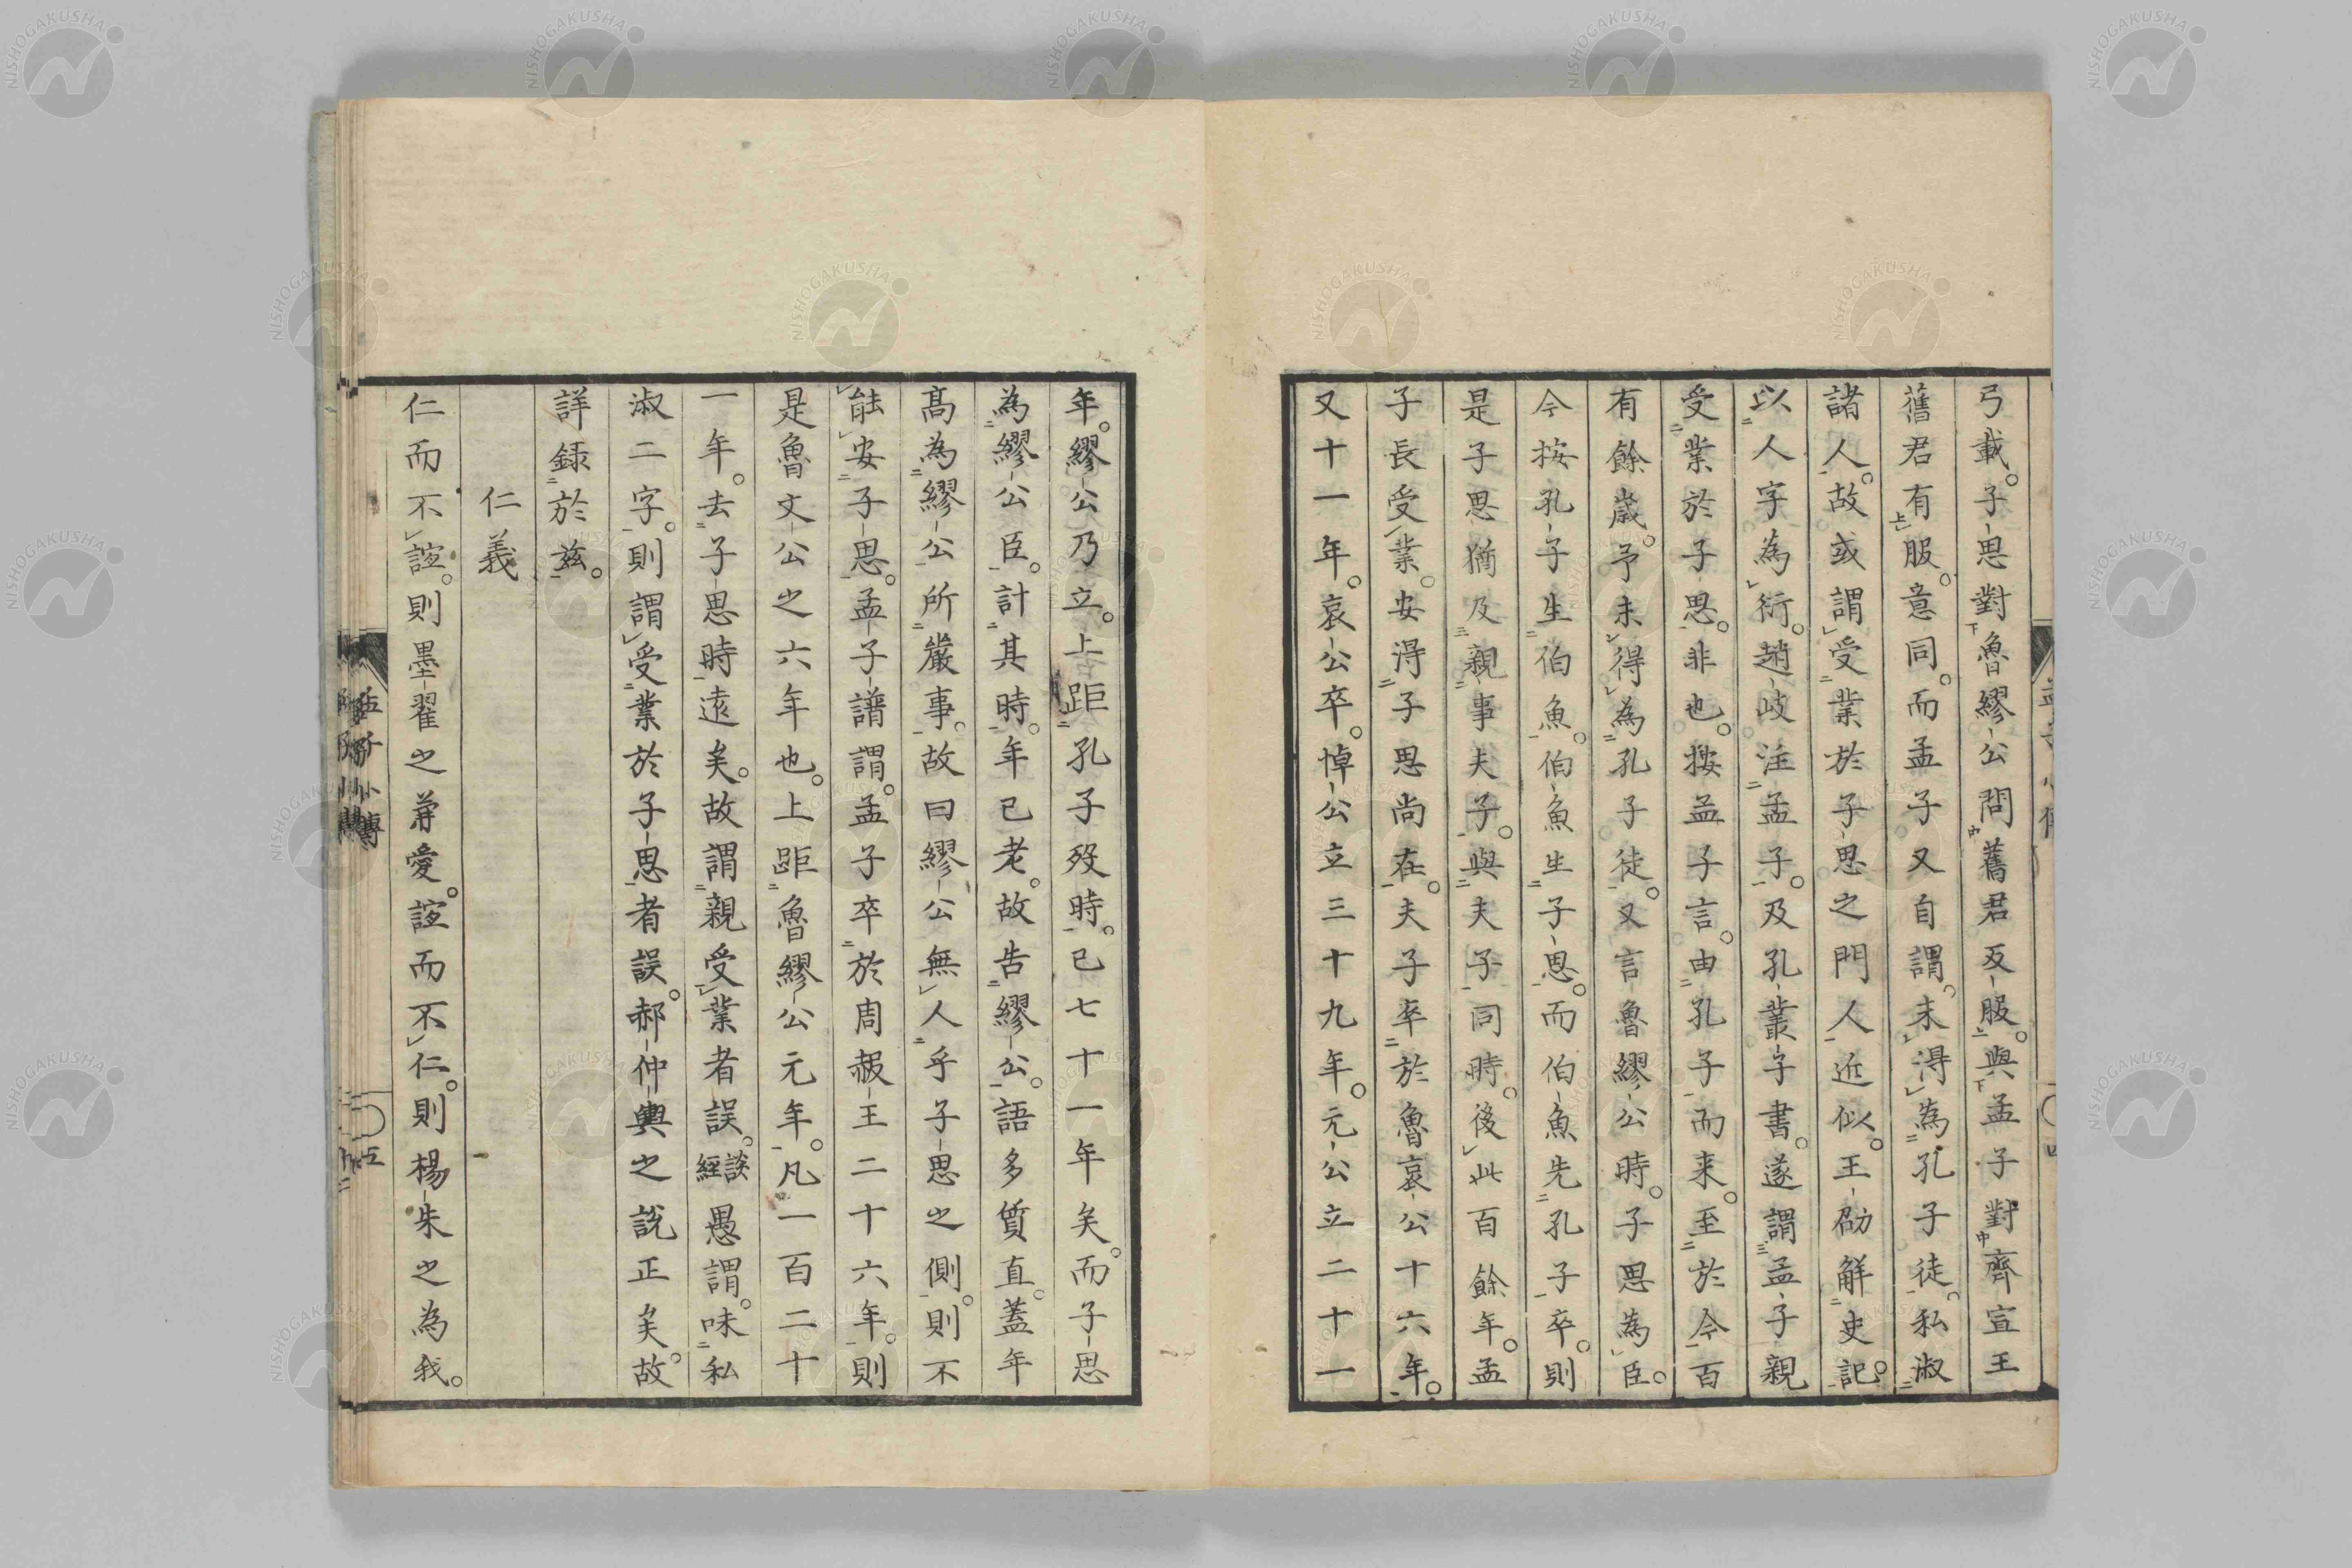 弓載。子思對魯繆公問舊君反服。與孟子對齊宣王
舊君有服。意同。而孟子又自謂。未得為孔子徒。私淑
諸人。故或謂受業於子思之門人近似。王劭解史記。
以人字為衍。趙岐注孟子。及孔叢子書。遂謂孟子親
受業於子思。非也。按孟子言。由孔子而来。至於今百
有餘歳。予未得為孔子徒。又言魯繆公時。子思為臣。
今按孔子生伯魚。伯魚生子思。而伯魚先孔子卒。則
是子思猶及親事夫子。與夫子同時。後此百餘年。孟
子長受業。安得子思尚在。夫子卒於魯哀公十六年。
又十一年。哀公卒。悼公立三十九年。元公立二十一
年。繆公乃立。上距孔子歿時。已七十一年矣。而子思
為繆公臣。計其時。年已老。故告繆公。語多質直。蓋年
髙為繆公所嚴事。故曰繆公無人乎子思之側。則不
能安子思。孟子譜謂。孟子卒於周赧王二十六年。則
是魯文公之六年也。上距魯繆公元年。凡一百二十
一年。去子思時遠矣。故謂親受業者誤。談經愚謂。味私
淑二字。則謂受業於子思者誤。郝仲輿之説正矣。故
詳録於兹。
仁義
仁而不誼。則墨翟之兼愛。誼而不仁。則楊朱之為我。
孟子小傳
五
NISHOGAKUSHA